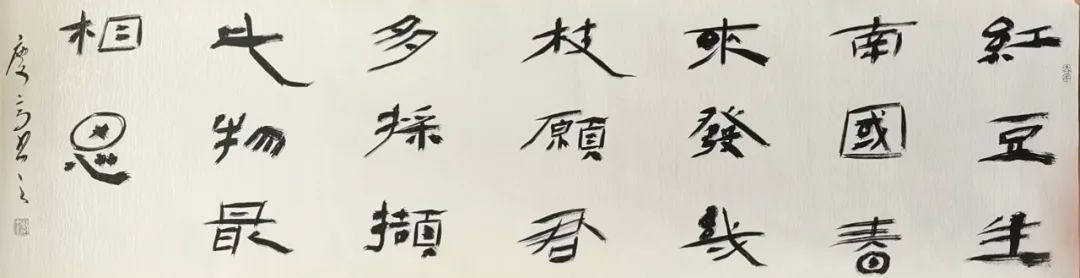 紅豆生
南國春
來發幾
枝願君
多採擷
此物最
相思